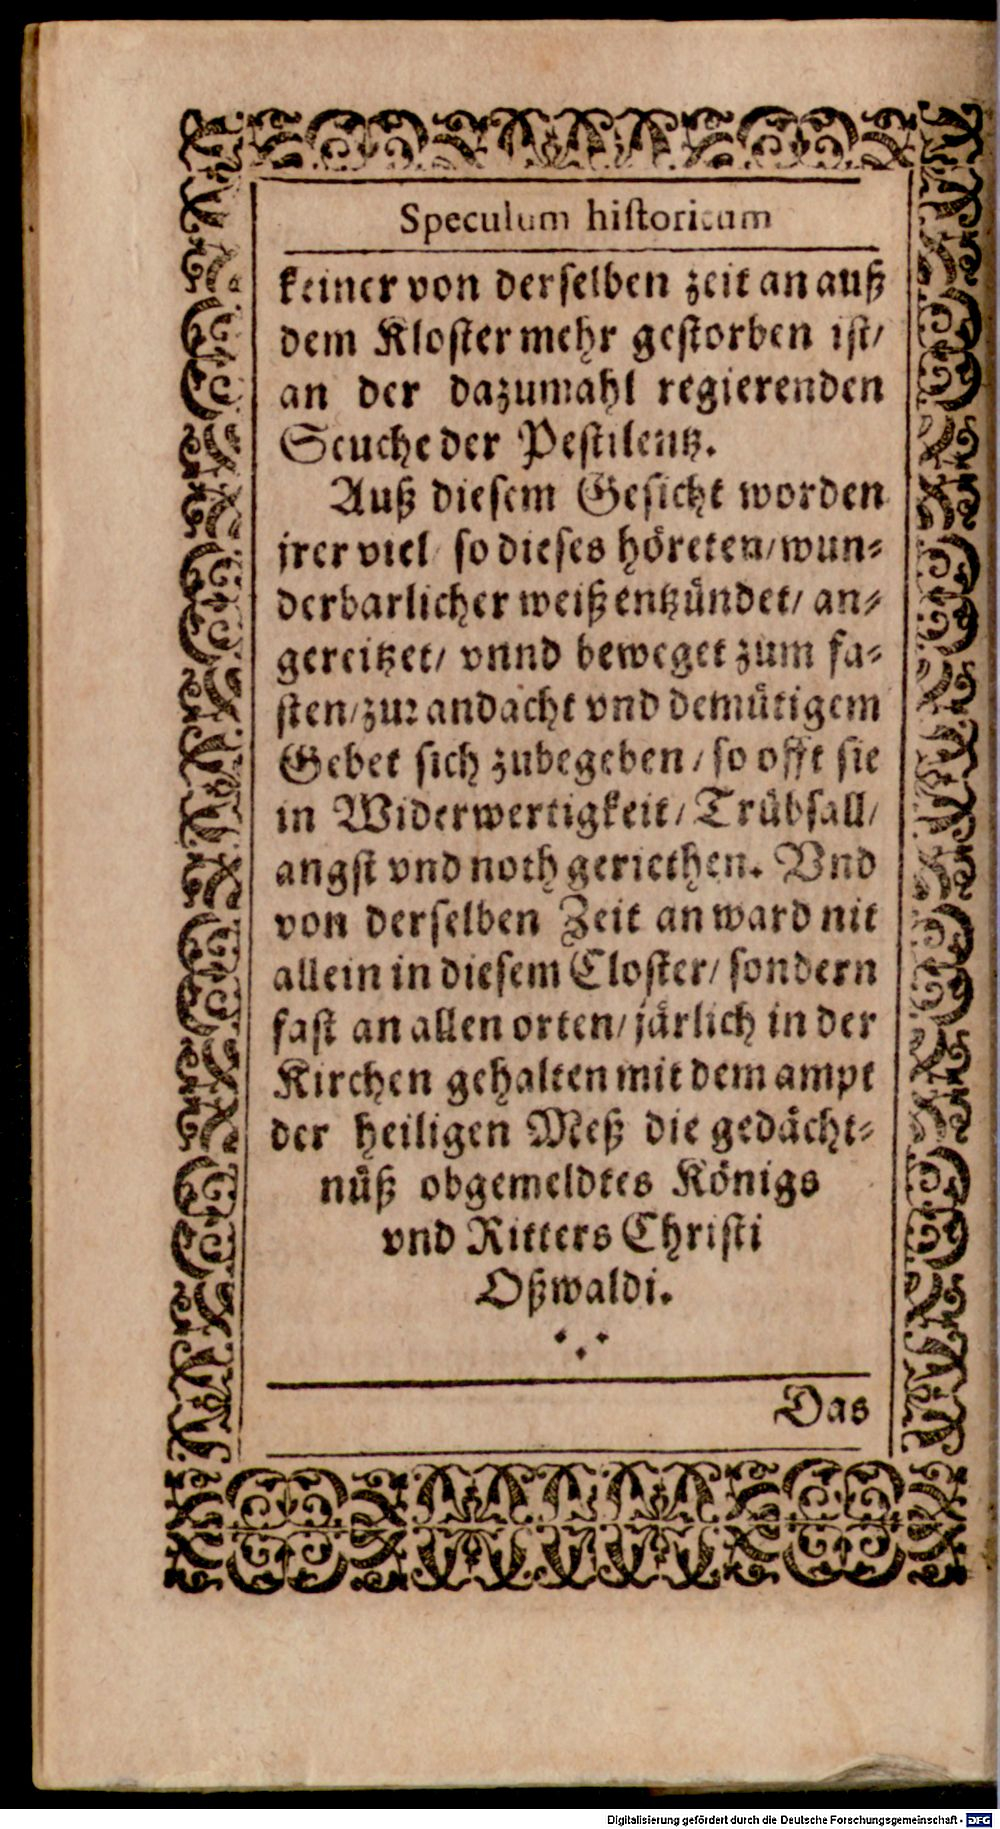 Speculum historicum
keiner von derselben zeit an auß
dem Kloster mehr gestorben ist/
an der dazumahl regierenden
Seuche der Pestilentz.
Auß diesem Gesicht worden
jrer viel/ so dieses höreten/ wun-
derbarlicher weiß entzündet/ an-
gereitzet/ vnnd beweget zum fa-
sten/ zur andacht vnd demütigem
Gebet sich zubegeben/ so offt sie
in Widerwertigkeit/ Trübsall/
angst vnd noth geriethen. Vnd
von derselben Zeit an ward nit
allein in diesem Closter/ sondern
fast an allen orten/ järlich in der
Kirchen gehalten mit dem ampt
der heiligen Meß die gedächt-
nüß obgemeldtes Königs
vnd Ritters Christi
Oßwaldi.
Das
Digitalisierung gefördert durch die Deutsche Forschungsgemeinschaft - DFG